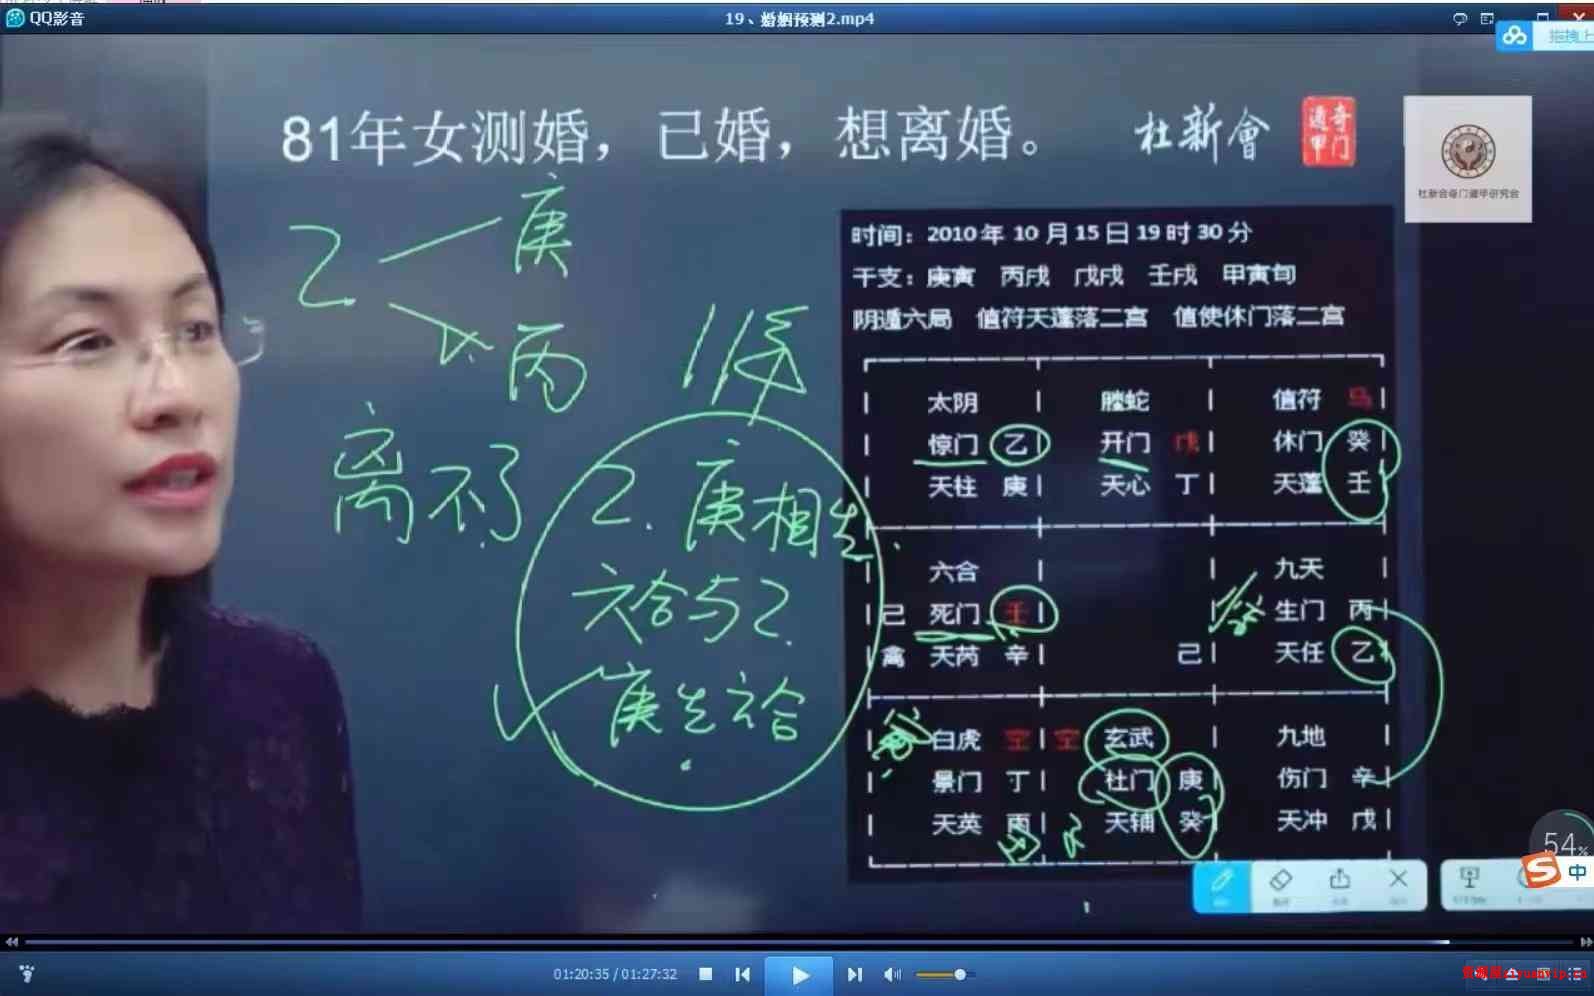 QQ影音
19、婚姻预测2.mp4
拖拽上
81年女测婚，已婚，想离婚。
杜新會
奇门遁甲
杜新会奇门遁甲研究会
时间：2010年10月15日19时30分
干支：庚寅 丙戌 戊戌 壬戌 甲寅旬
阴遁六局 值符天蓬落二宫 值使休门落二宫
太阴 螣蛇 值符 马
惊门 乙 开门 戊 休门 癸
天柱 庚 天心 丁 天蓬 壬
六合 九天
己 死门 壬 生门 丙
禽 天芮 辛 己 天任 乙
白虎 空 空 玄武 九地
景门 丁 杜门 庚 伤门 辛
天英 丙 天辅 癸 天冲 戊
乙 庚
丙
离不了
乙.庚相生
六合与乙
庚生六合
54%
中
01:20:35 / 01:27:32